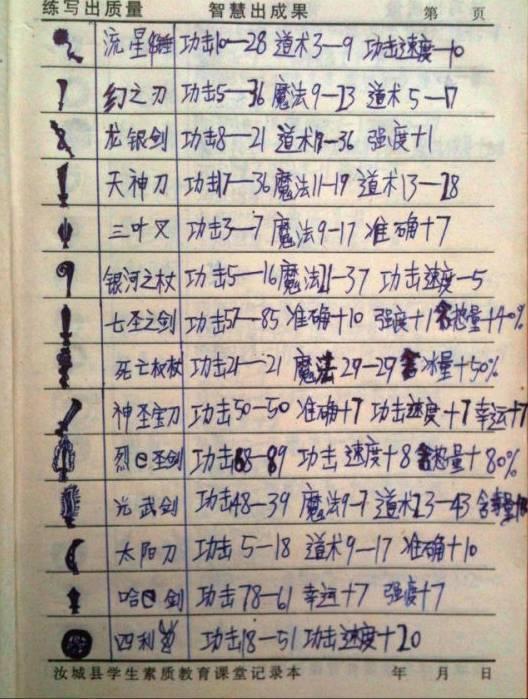 练写出质量 智慧出成果 第 页
流星锤 功击10—28 道术3—9 功击速度—10
幻之刃 功击5—36 魔法9—23 道术5—17
龙银剑 功击8—21 道术18—36 强度+1
天神刀 功击17—36 魔法11—19 道术13—28
三叶叉 功击3—7 魔法9—17 准确+7
银河之杖 功击5—16 魔法21—37 功击速度—5
七圣之剑 功击57—85 准确+10 强度+1 含热量+40%
死亡权杖 功击21—21 魔法29—29 含冰量+50%
神圣宝刀 功击50—50 准确+7 功击速度+7 幸运+7
烈e圣剑 功击68—89 功击速度+8 含热量+80%
光武剑 功击48—39 魔法9—7 道术23—43
太阳刀 功击5—18 道术9—17 准确+10
哈e剑 功击78—61 幸运+7 强度+7
四利 功击18—51 功击速度+20
汝城县学生素质教育课堂记录本 年 月 日